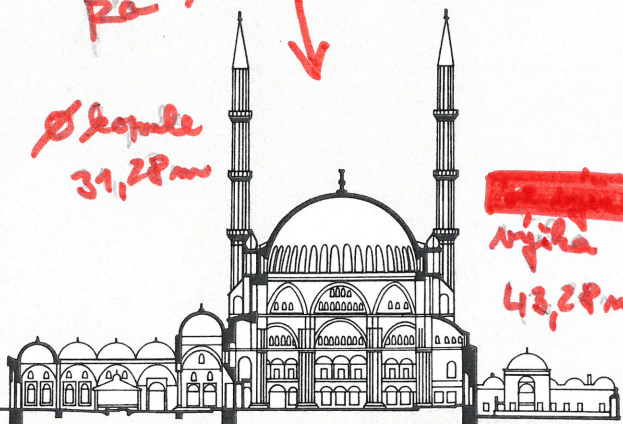 pa
Ø kopule
31,28 m
výška
43,28 m